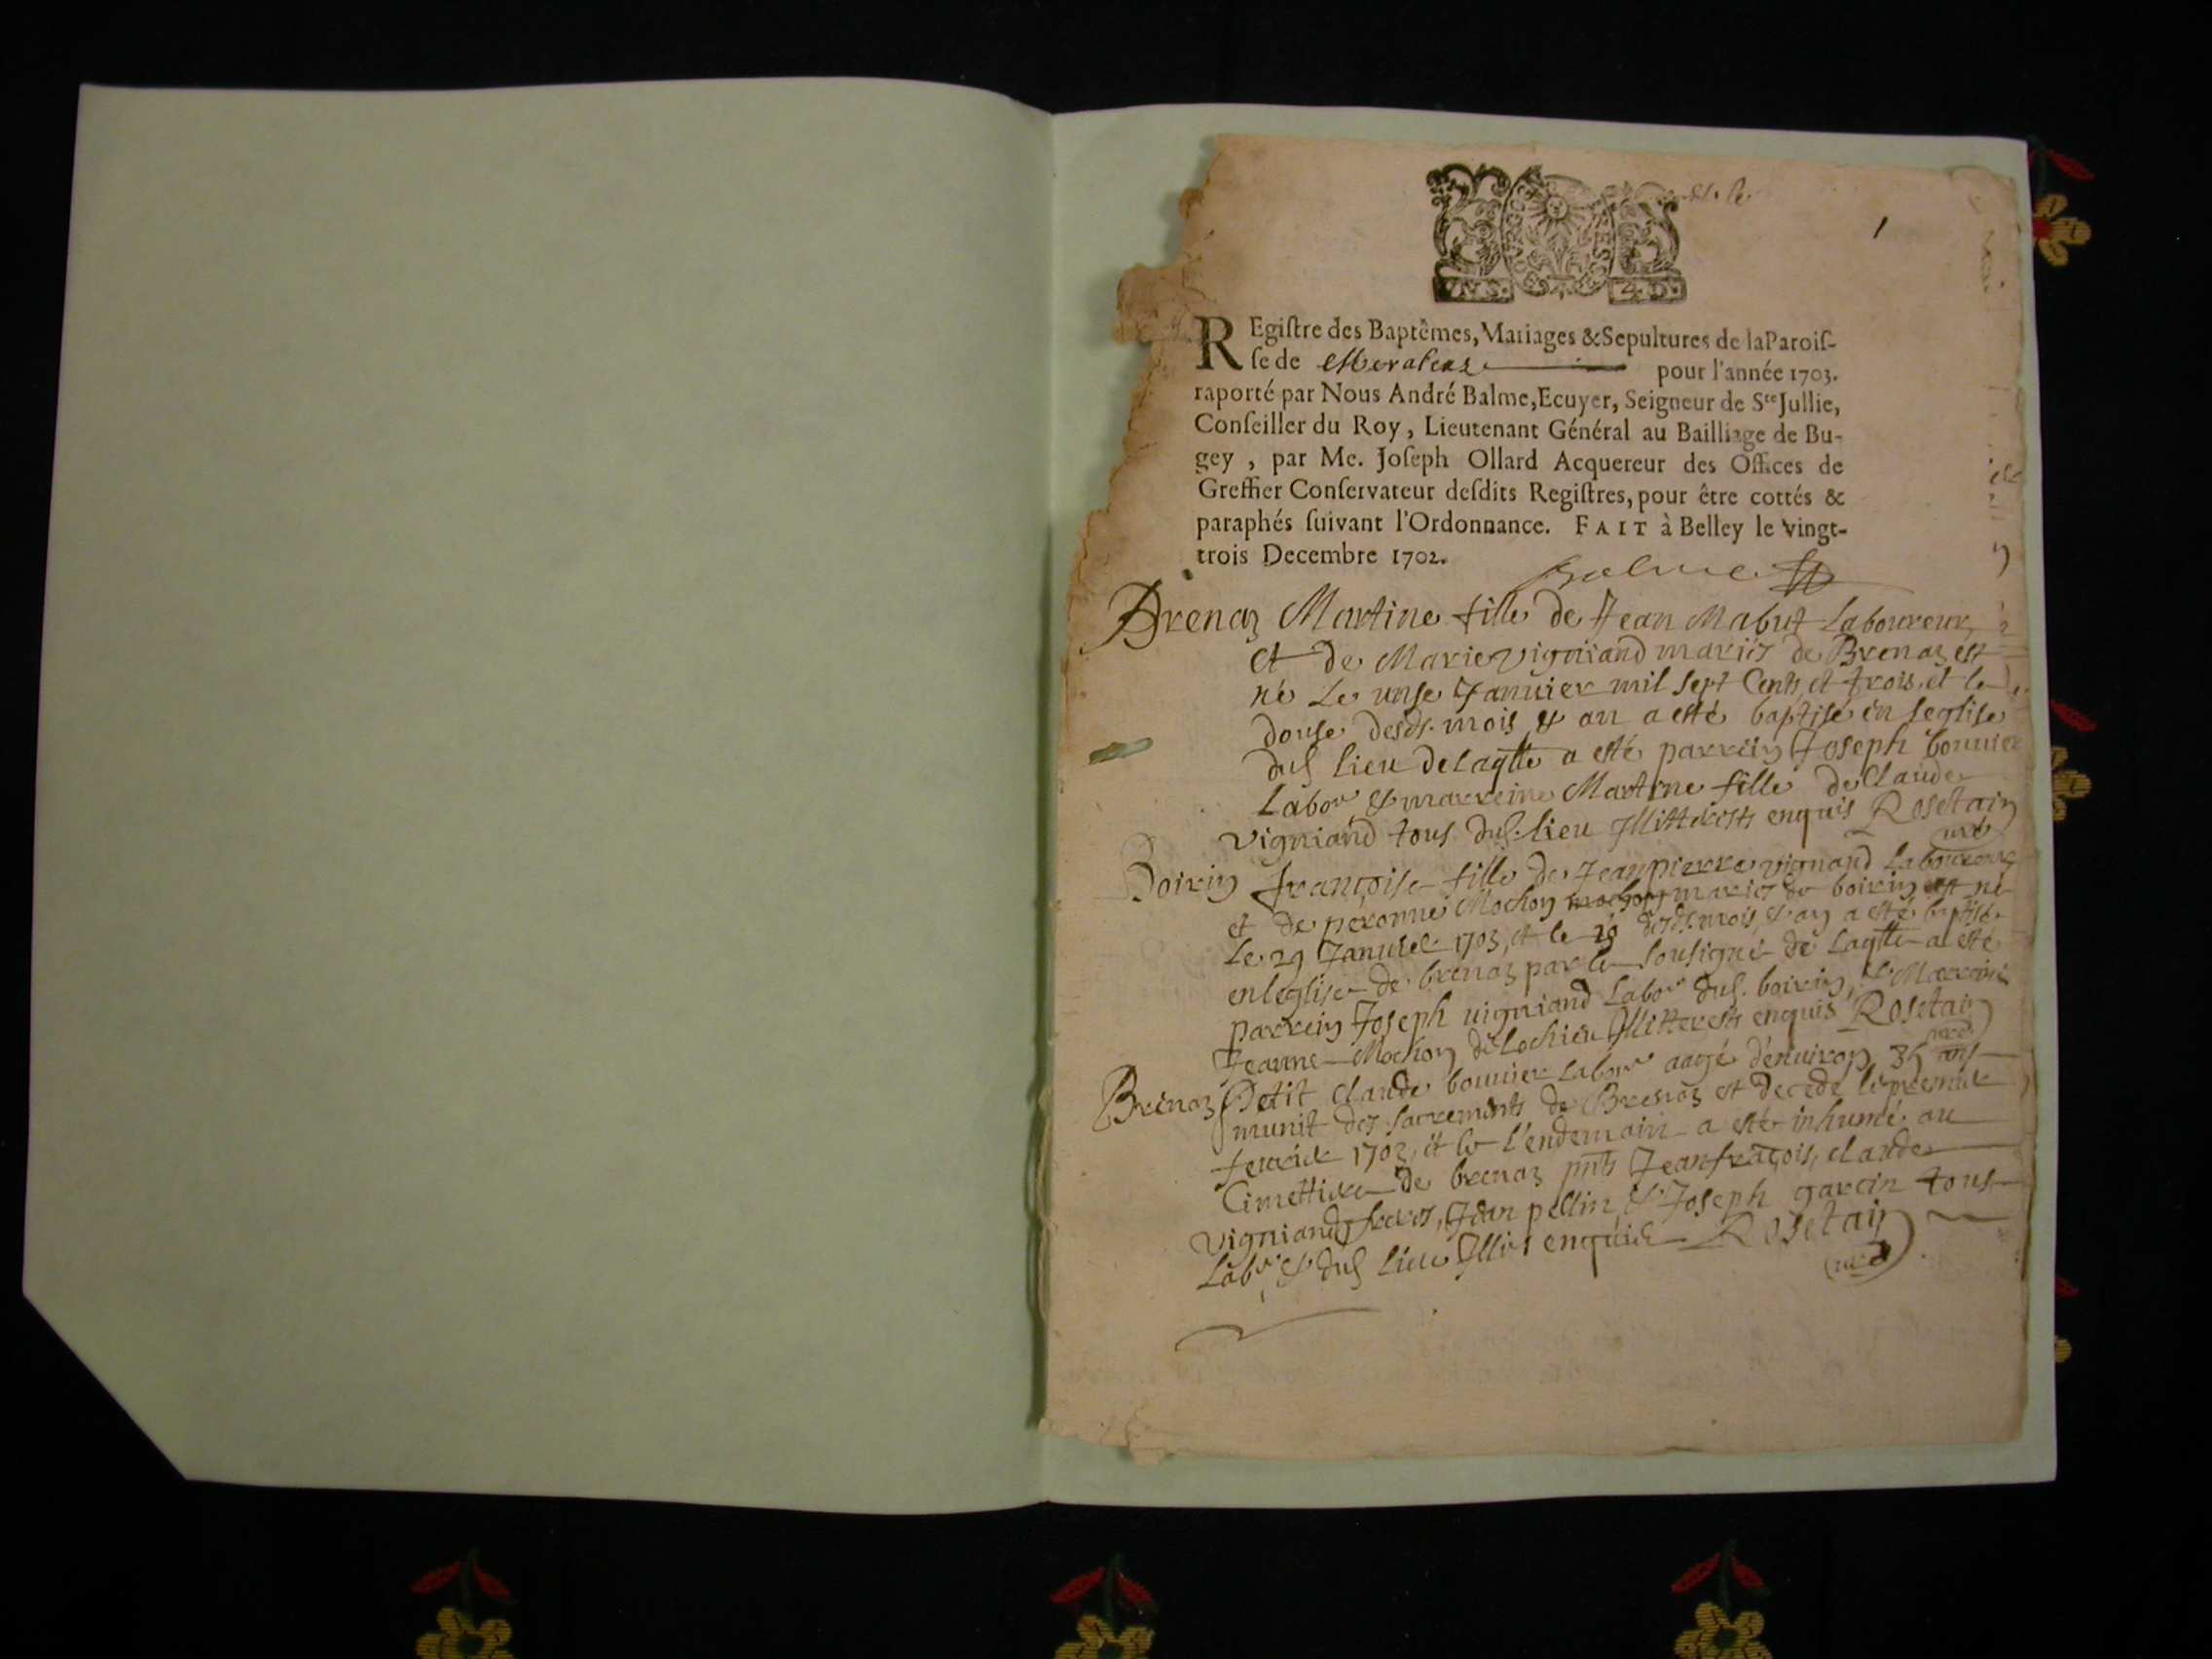 1
REgistre des Baptêmes, Mariages & Sepultures de la Parois-
se de pour l'année 1703.
raporté par Nous André Balme, Ecuyer, Seigneur de Ste Jullie,
Conseiller du Roy, Lieutenant Général au Bailliage de Bu-
gey, par Me. Joseph Ollard Acquereur des Offices de
Greffier Conservateur desdits Registres, pour être cottés &
paraphés suivant l'Ordonnance. FAIT à Belley le vingt-
trois Decembre 1702.
Balme
Brenaz Martine fille de Jean Mabut Laboureur,
et de Marie vigniand mariés de Brenaz est
né Le unse Janvier mil sept Cents et trois, et le
douse desds. mois & an a esté baptisé en leglise
dud lieu delaqlle a esté parrein Joseph bonnier
Labor & marreine Martine fille de Claude
vigniand tous dud. lieu Jllitterests enquis Rosetain
curé
Boirin françoise fille de Jean pierre vignand laboureur
et de peronne Mochon mochon mariés de boirin est né
Le 29 Janvier 1703, et le desds. mois & an a esté baptisé
en leglise de brenaz par le sousigné de Laqlle a esté
parrein Joseph vigniand Labor dud. boirin, & Marreine
Jeanne Mochon de Lochieu Jllitterests enquis Rosetain
curé
Brenaz Petit Claude bonnier Labor aagé d'environ 35 ans
munit des sacrements de Brenaz est decedé le premier
fevrier 1703, et le l'endemain a esté inhumé au
Cimettiere de brenaz pnts Jean françois, claude
vigniand freres, Jean pellin & Joseph garcin tous
Labrs & dud lieu Jllis enquis Rosetain
curé